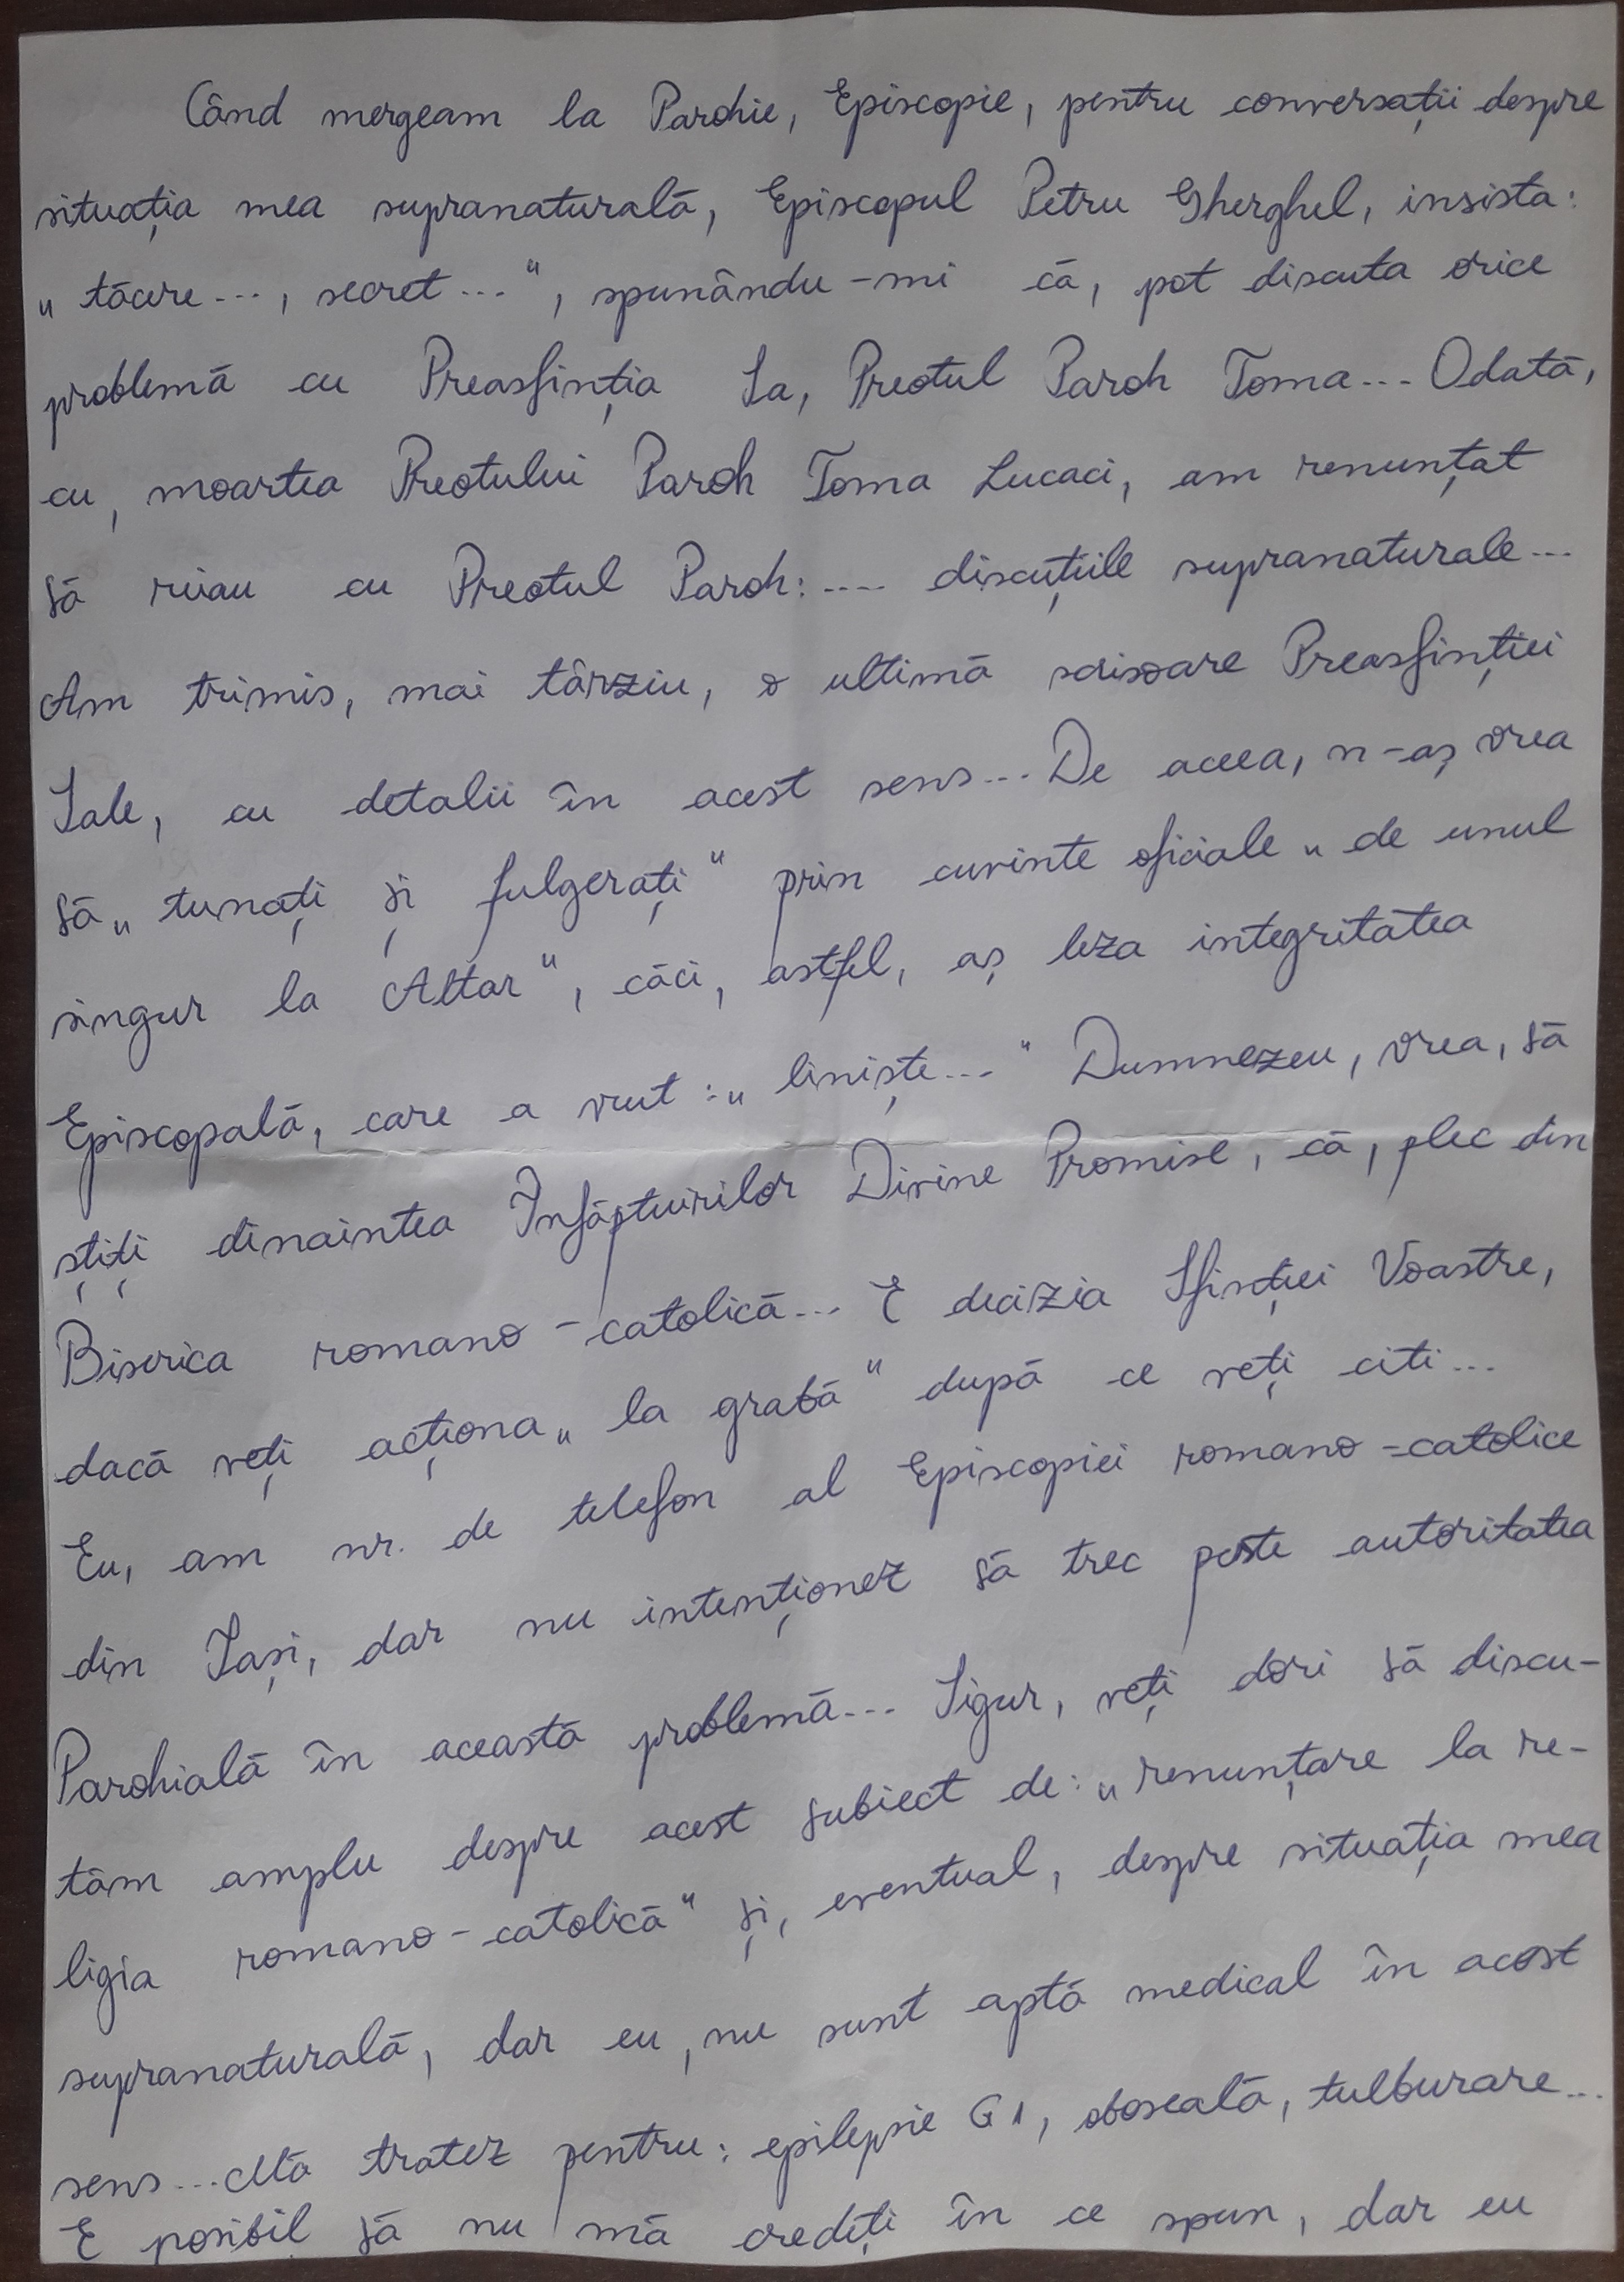 Când mergeam la Parohie, Episcopie, pentru conversații despre
situația mea supranaturală, Episcopul Petru Gherghel, insista:
„tăcere..., secret...", spunându-mi că, pot discuta orice
problemă cu Preasfinția Sa, Preotul Paroh Toma... Odată,
cu, moartea Preotului Paroh Toma Lucaci, am renunțat
să reiau cu Preotul Paroh: .... discuțiile supranaturale...
Am trimis, mai târziu, o ultimă scrisoare Preasfinției
Sale, cu detalii în acest sens... De aceea, n-aș vrea
să „tunați și fulgerați" prin cuvinte oficiale „de unul
singur la Altar", căci, astfel, aș leza integritatea
Episcopală, care a vrut: „liniște..." Dumnezeu, vrea, să
știți dinaintea Înfăptuirilor Divine Promise, că, plec din
Biserica romano-catolică... E decizia Sfinției Voastre,
dacă veți acționa „la grabă" după ce veți citi...
Eu, am nr. de telefon al Episcopiei romano-catolice
din Iași, dar nu intenționez să trec peste autoritatea
Parohială în această problemă... Sigur, veți dori să discu-
tăm amplu despre acest subiect de: „renunțare la re-
ligia romano-catolică" și, eventual, despre situația mea
supranaturală, dar eu, nu sunt aptă medical în acest
sens... Mă tratez pentru: epilepsie G1, oboseală, tulburare...
E posibil să nu mă credeți în ce spun, dar eu